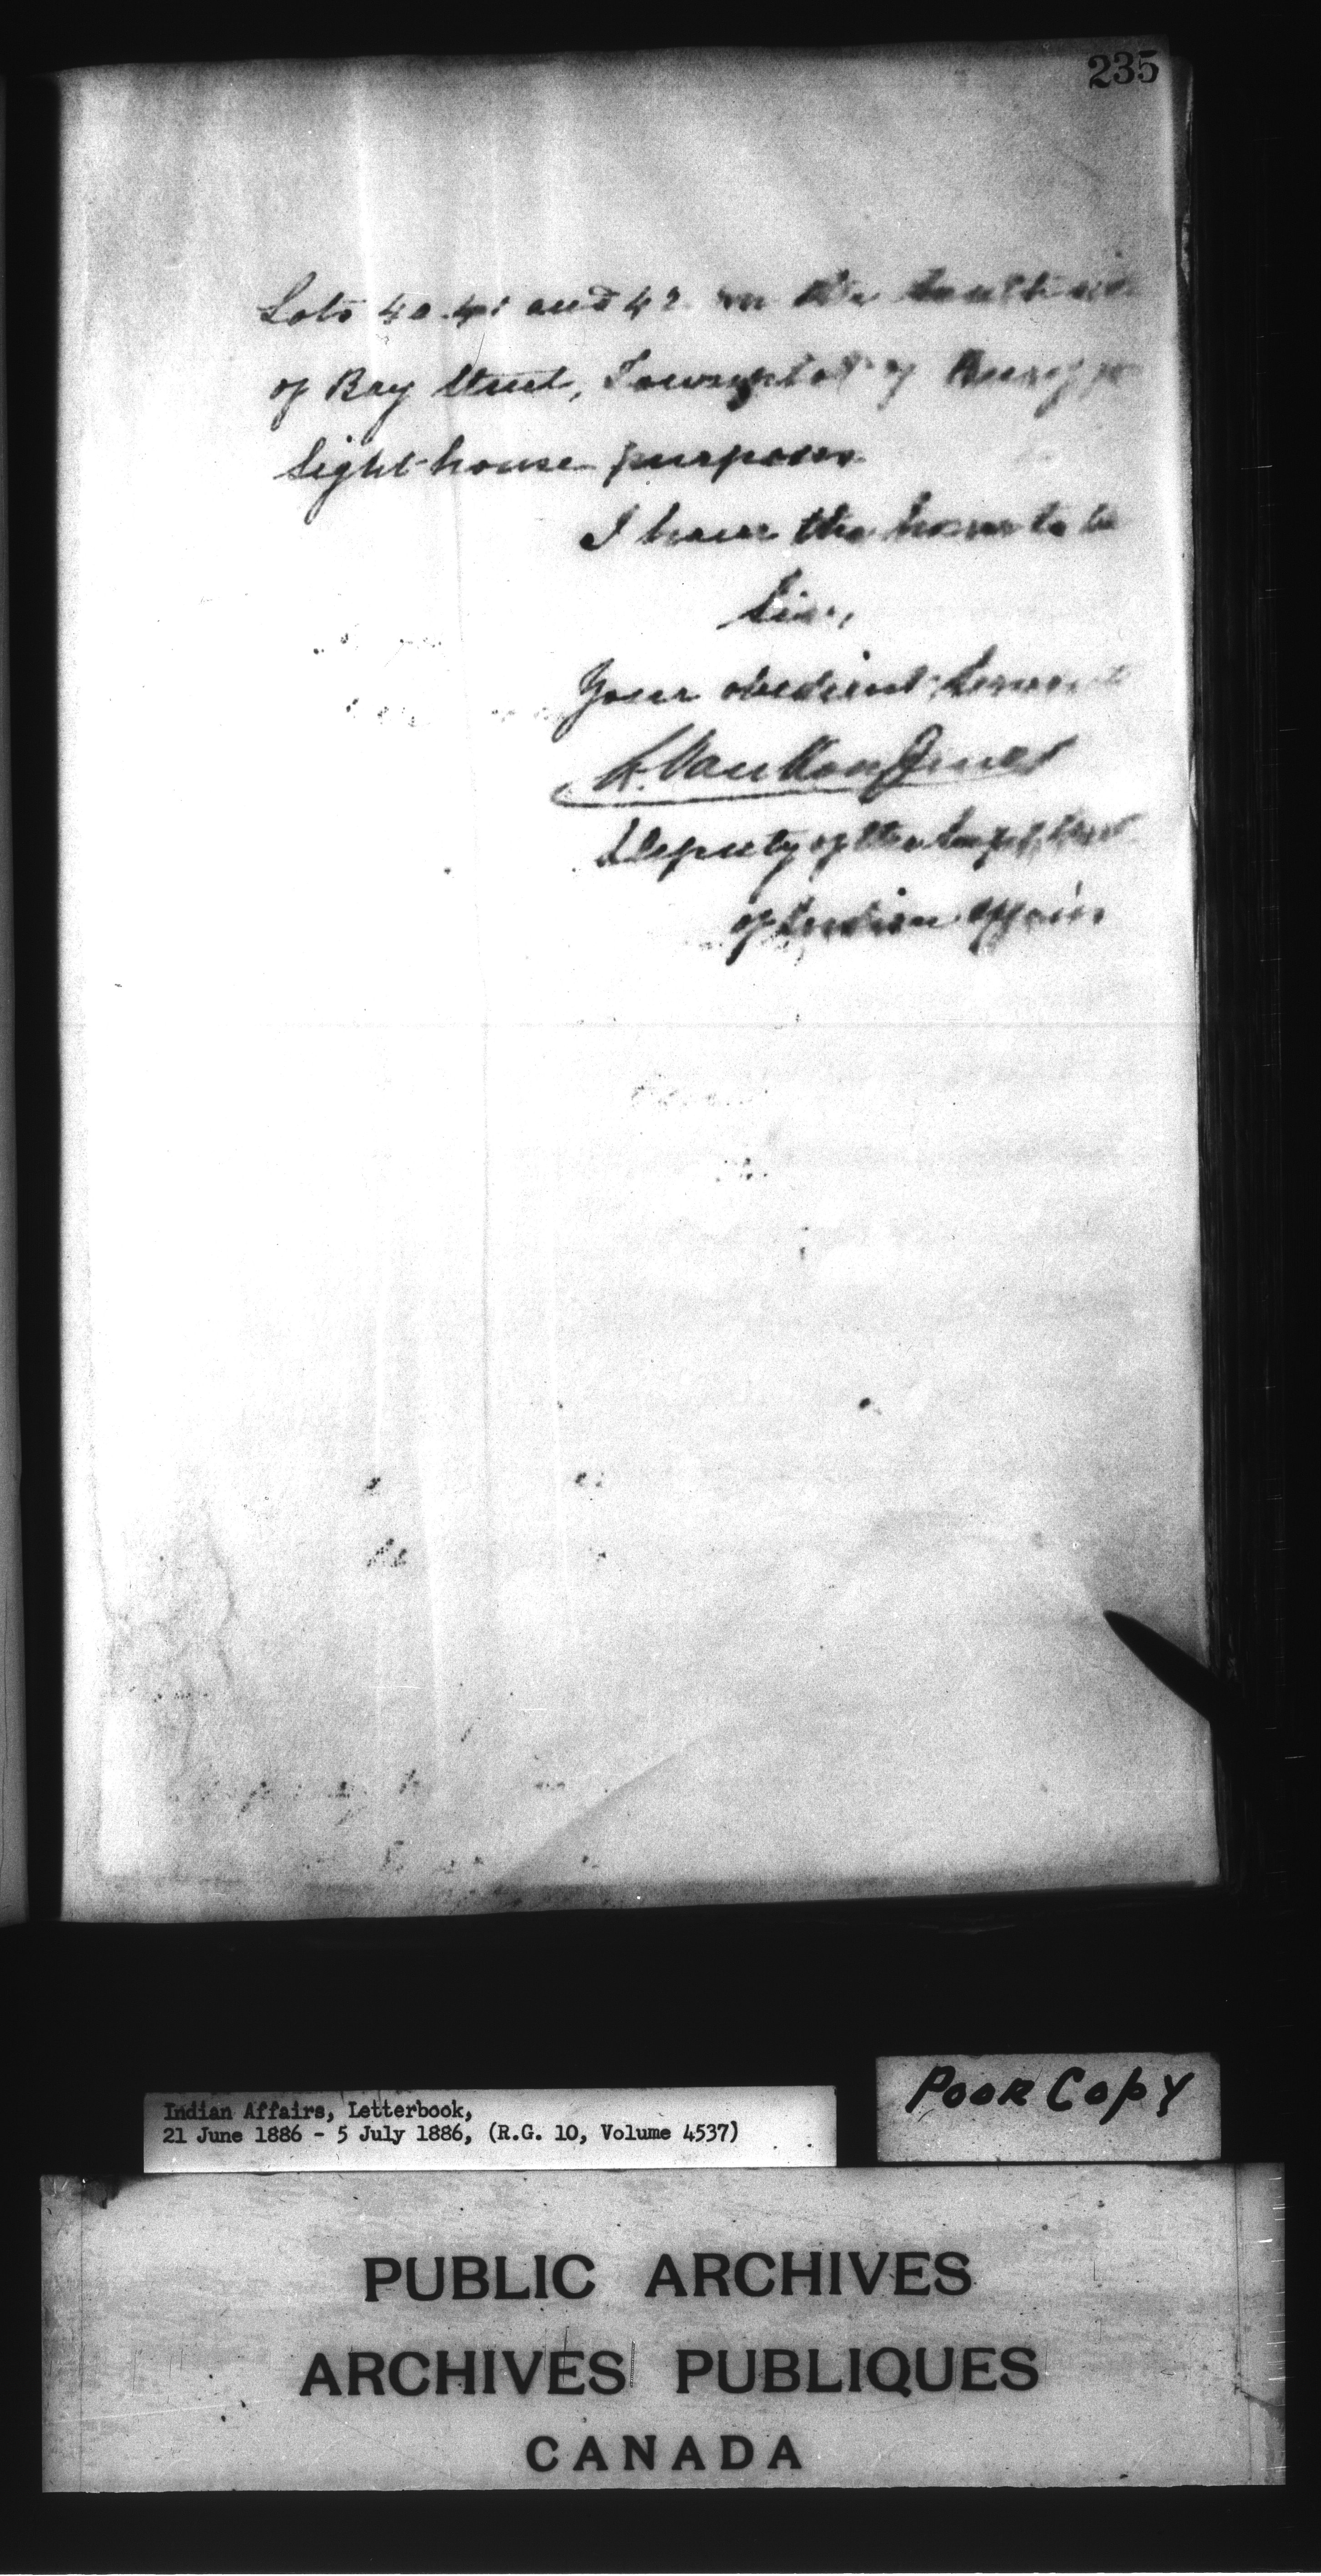 235
Lots 40. 41 and 42 on the South side
of Bay Street, Townplot of
light-house purposes.
I have the honor to be
Sir,
Your obedient servant
L. VanKoughnet
Deputy of the Supt. Genl
of Indian Affairs
Poor Copy
Indian Affairs, Letterbook,
21 June 1886 - 5 July 1886, (R.G. 10, Volume 4537)
PUBLIC ARCHIVES
ARCHIVES PUBLIQUES
CANADA